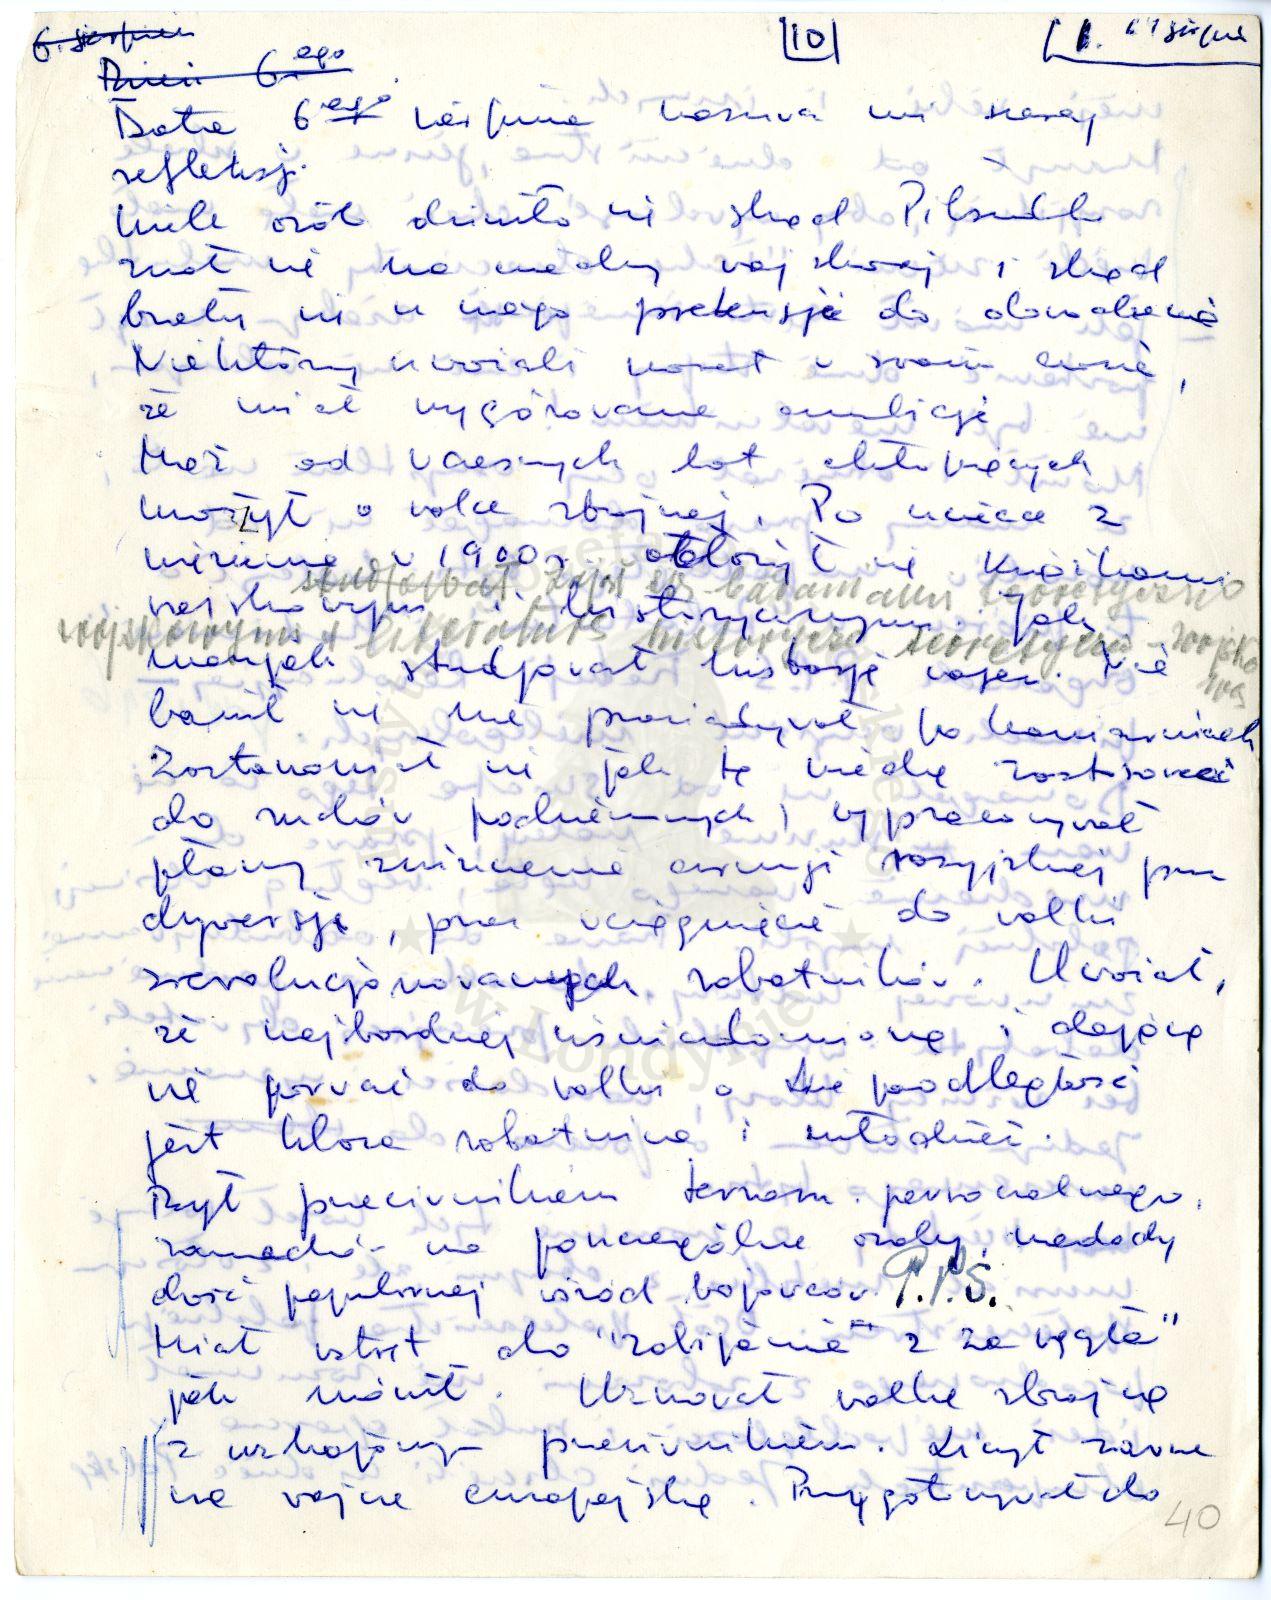 6. sierpień
10
1. 6 sierpnia
Dzień 6ego
Data 6ego sierpnia nasuwa mi szereg
refleksji.
Wiele osób dziwiło się skąd Piłsudski
znał się na wiedzy wojskowej i skąd
brały się u niego pretensje do dowodzenia
Niektórzy uważali nawet w swoim czasie,
że miał wygórowane ambicje
Mąż od wczesnych lat chłopięcych
marzył o walce zbrojnej. Po ucieczce z
więzienia w 1900 r. obłożył się książkami
studjował zajął się badaniami teoretyczno
wojskowymi i historycznymi. Jak
wojskowymi i literaturą historyczną teoretyczno-wojsko
wą
maniak studjował historję wojen. Nie
bawił się nie przesiadywał po kawiarniach
Zastanawiał się jak tę wiedzę zastosować
do ruchów podziemnych i wypracowywał
plany zniszczenia armji rosyjskiej przez
dywersję, przez wciągnięcie do walki
zrewolucjonowanych robotników. Uważał,
że najbardziej uświadomioną i dającą
się porwać do walki o niepodległość
jest klasa robotnicza i młodzież.
Był przeciwnikiem terroru personalnego,
zamachów na poszczególne osoby, metody
dość popularnej wśród bojowców P.P.S.
Miał wstręt do "zabijania" z za węgła"
jak mówił. Uznawał walkę zbrojną
z uzbrojonym przeciwnikiem. Liczył zawsze
na wojnę europejską. Przygotowywał do
40
Józefa
Instytut
Piłsudskiego
w Londynie